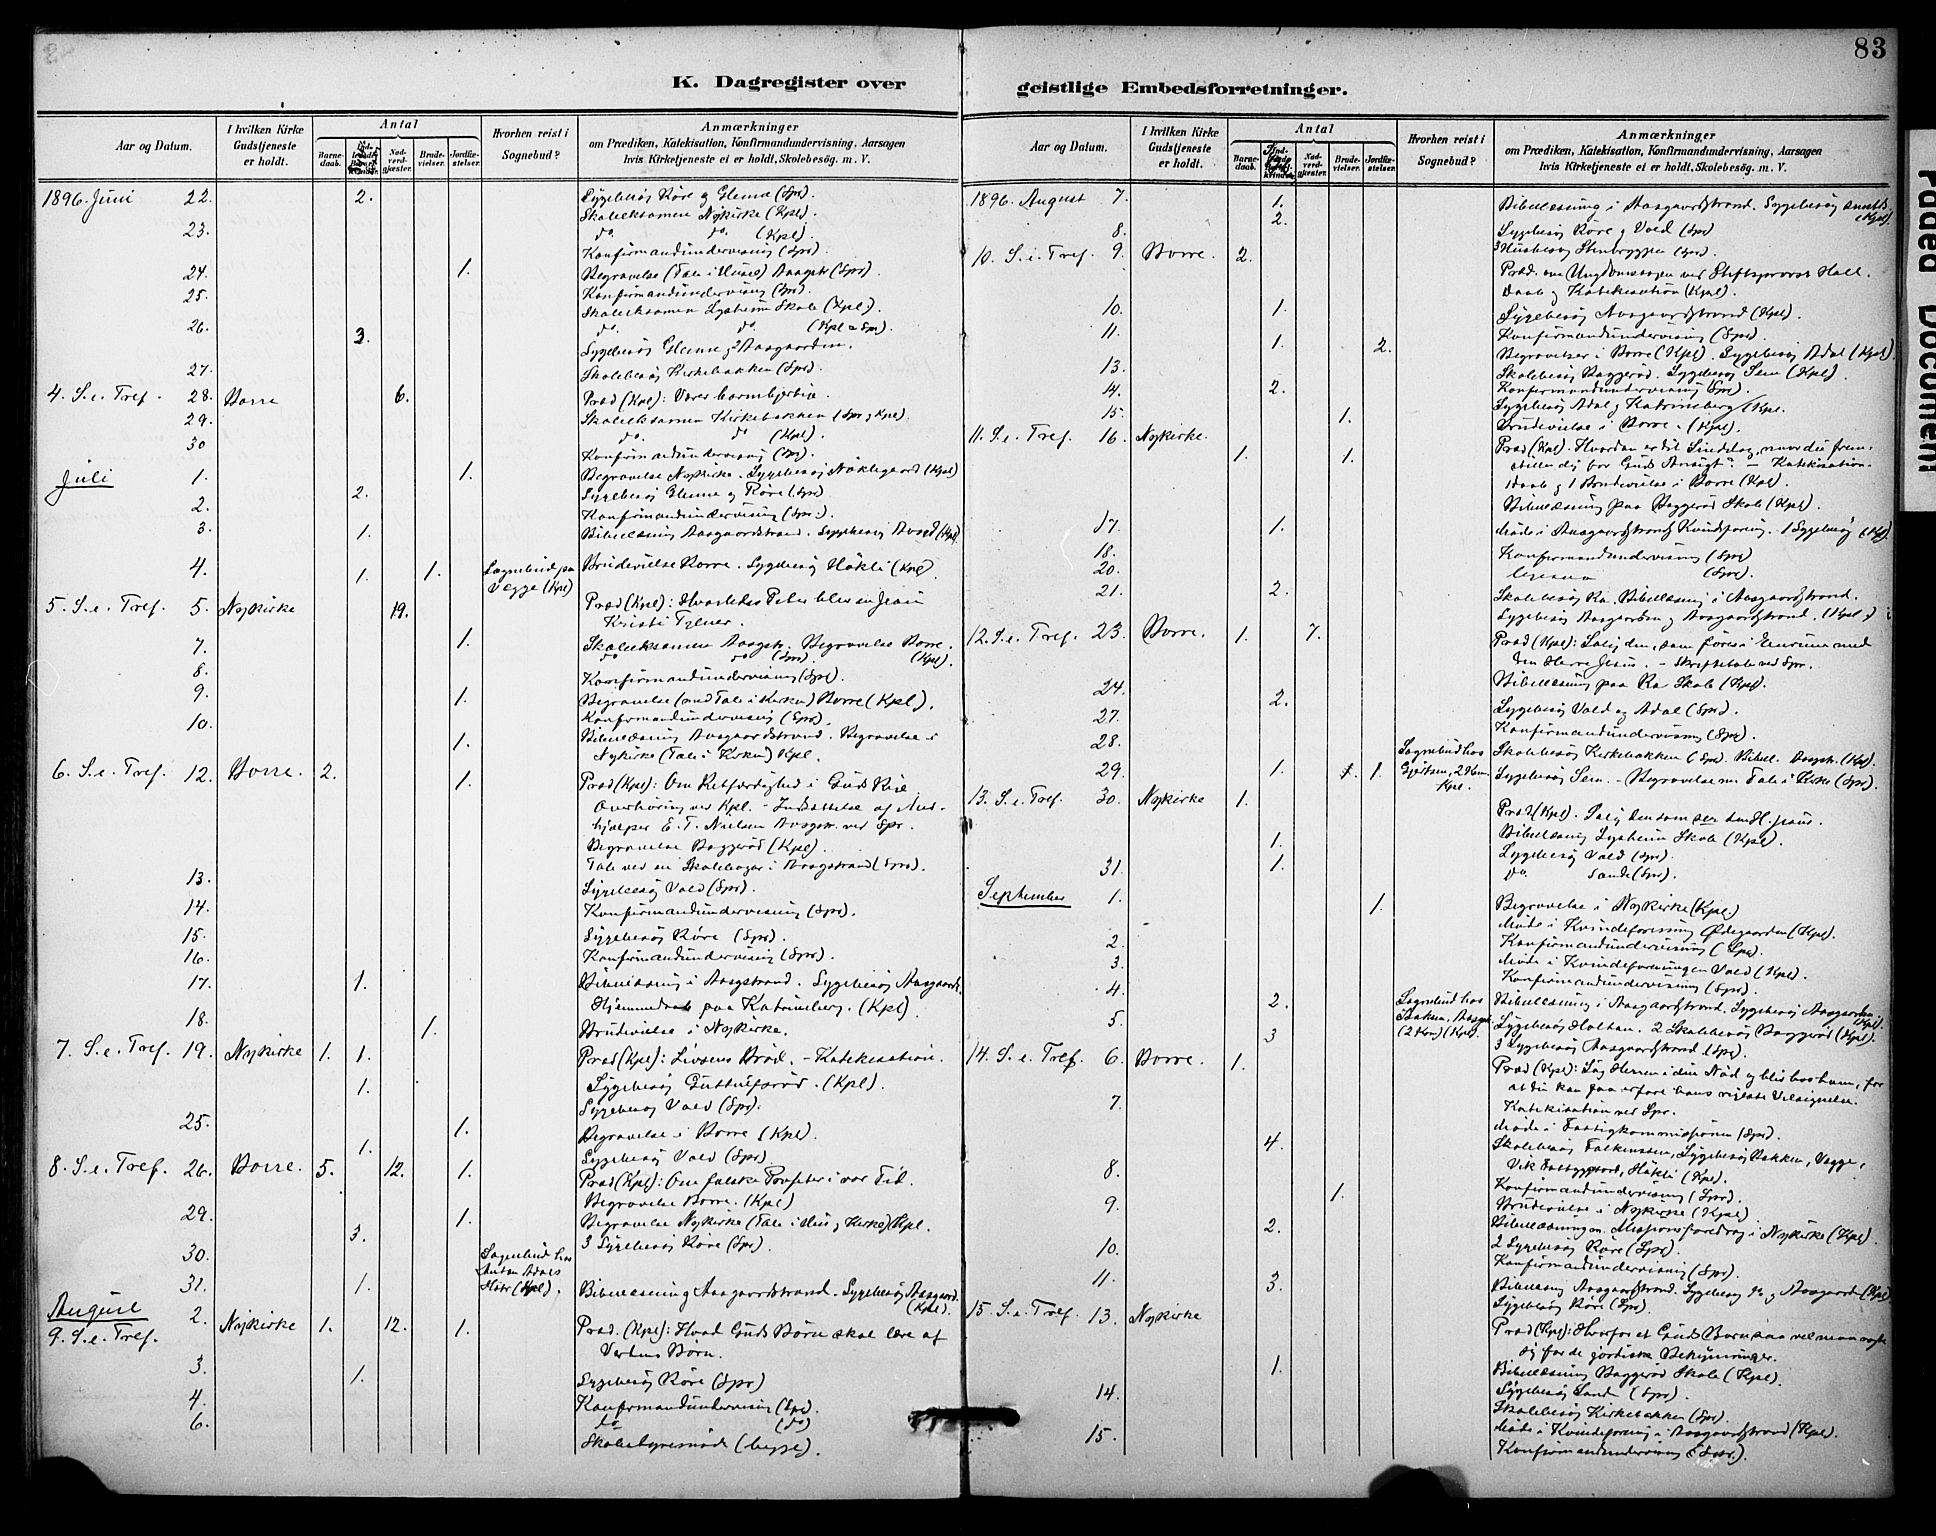 83
K. Dagregister over
Aar og Datum.
I hvilken Kirke Gudstjeneste er holdt.
Antal
Barne-daab.
Nad-verd-gjester.
Brude-vielser.
Jordfæ-stelser.
Hvorhen reist i Sognebud?
Anmærkninger
om Prædiken, Katekisation, Konfirmandundervisning, Aarsagen
hvis Kirketjeneste ei er holdt, Skolebesøg. m. V.
1896. Juni 22. 2. Sygebesøg Røre og Glenne (Spr).
Skoleeksamen Nykirke (Kpl).
23. do. do. (Kpl).
Konfirmandundervisning (Spr).
24. 1. Begravelse (Tale i Huset) Aasgstr (Spr).
25. Konfirmandundervisning (Spr).
Skoleeksamen Lysheim Skole (Kpl).
26. do. do. (Kpl & Spr).
3. Sygebesøg Glenne og Aasgaarden.
27. Skolebesøg Kirkebakken (Spr).
4. S. e. Tref. 28. Borre 6. Præd (Kpl): Værer barmhjertige.
29. Skoleeksamen Kirkebakken (Spr og Kpl).
30 do. do (Kpl).
Konfirmandundervisning (Spr).
Juli 1. 1. Begravelse Nykirke. Sygebesøg Nøklegaard (Kpl)
2. 2. Sygebesøg Glenne og Røre (Spr)
Konfirmandundervisning (Spr.)
3. 1. Bibellæsning Aasgaardstrand. Sygebesøg (Kpl).
4. 1. 1. Sognebud paa Vegge (Kpl) Brudevielse Borre. Sygebesøg Håkli (Kpl).
5. S. e. Tref. 5. Nykirke 19. Præd (Kpl): Hvorledes Peter blev en Jesu
Kristi Tjener.
7. 1. Skoleeksamen Aasgstr. Begravelse Borre.
do do (Spr). (Kpl).
8. Konfirmandundervisning (Spr).
9. 1. Begravelse (med Tale i Kirken) Borre (Kpl).
10. Konfirmandundervisning (Spr).
1. Bibellæsning Aasgaardstrand. Begravelse i
Nykirke (Tale i Kirken) Kpl.
6. S. e. Tref. 12. Borre. 2. 1. Præd (Kpl): Om Retfærdighed i Guds Rige
Overhøring ved Kpl. - Indsættelse af Med-
hjælper E. T. Nielsen Aasgstr. ved Spr.
Begravelse Baggerød (Kpl).
Tale ved en Skolebazar i Aasgstrand (Spr).
13. Sygebesøg Vold (Spr).
14. Konfirmandundervisning (Spr).
15. Sygebesøg Røre (Spr).
16. Konfirmandundervisning (Spr).
17. 1. Bibellæsning i Aasgstrand. Sygebesøg Aasgaarde.
Hjemmedaab paa Katrineberg. (Kpl)
18. 1. Brudevielse i Nykirke.
7. S. e. Tref. 19. Nykirke 1. 1. Præd (Kpl): Livsens Brød. - Katekisation.
1. Sygebesøg Guttulfsrød. (Kpl).
Sygebesøg Vold (Spr).
25. 1. Begravelse i Borre (Kpl).
1. Sygebesøg Vold (Spr).
8. S. e. Tref. 26. Borre. 5. 12. 1. Præd (Kpl): Om falske Profeter i vor Tid.
Begravelse Borre. (Kpl)
29. 1. Begravelse Nykirke (Tale i Hus og Kirke) (Kpl.
3. 3 Sygebesøg Røre (Spr).
30. Sognebud hos Anton Adals (Kpl).
31. 1. Bibellæsning Aasgaardstrand. Sygebesøg Aasgaard.
(Kpl).
August 2. Nykirke 1. 12. 1. Præd. (Kpl): Hvad Guds Børn skal lære af
9. S. e. Tref. Verdens Børn.
3. 1. Sygebesøg Røre (Spr)
4. Konfirmandundervisning (Spr).
6. do (do)
Skolestyremøde (begge).
geistlige Embedsforretninger.
Aar og Datum.
I hvilken Kirke Gudstjeneste er holdt.
Antal
Barne-daab.
Nad-verd-gjester.
Brude-vielser.
Jordfæ-stelser.
Hvorhen reist i Sognebud?
Anmærkninger
om Prædiken, Katekisation, Konfirmandundervisning, Aarsagen
hvis Kirketjeneste ei er holdt, Skolebesøg. m. V.
1896. August 7. 1. Bibellæsning i Aasgaardstrand. Sygebesøg (Kpl).
2. Sygebesøg Røre og Vold (Spr)
8. 3 Husbesøg Stenbryggen (Spr).
10. S. e. Tref. 9. Borre. 2. Præd. om Ungdomssagen ved Stiftsprovst Hall.
Daab og Katekisation (Kpl).
10. 1. Sygebesøg Aasgaardstrand (Kpl).
11. Konfirmandundervisning (Spr).
1. 2. Begravelser i Borre (Kpl). Sygebesøg Adal (Kpl).
13. Skolebesøg Baggerød. Sygebesøg Sem (Kpl).
14. 2. Konfirmandundervisning (Spr).
Sygebesøg Adal og Katrineberg (Kpl.
15. 1. Brudevielse i Borre. (Kpl).
11. S. e. Tref. 16. Nykirke. Præd (Kpl). Hvordan er dit Sindelag, naar du frem-
1. 1. stilles dig for Guds Ansigt? - Katekisation.
1 Daab og 1 Brudevielse i Borre (Kpl).
Bibellæsning paa Baggerød Skole (Kpl).
17. 1. Møde i Aasgaardstrands Kvindeforening. 1 Sygebesøg (Kpl)
18. Konfirmandundervisning (Spr)
20. (Spr).
21. 2. Skolebesøg Ra. Bibellæsning i Aasgaardstrand.
Sygebesøg Aasgaarden og Aasgaardstrand. (Kpl.)
12. S. e. Tref. 23. Borre. 1. 7. Præd (Kpl): Salig den, som føres i Enrum med
den Herre Jesus. - Skriftetale ved Spr.
Bibellæsning paa Ra Skole (Kpl).
24. 2. Sygebesøg Vold og Adal (Spr.)
27. Konfirmandundervisning (Spr).
28. Skolebesøg Kirkebakken (Spr). Bibell. Aasgstr. (Kpl).
29. 1. 1. Sognebud hos Gjertsen, 2 Km. Kpl. Sygebesøg Sem. - Begravelse m. Tale i Kirke (Spr).
13. S. e. Tref. 30. Nykirke 1. Præd (Kpl). Salig den som ser den H. Jesus.
1. Bibellæsning Lysheim Skole (Kpl).
Sygebesøg Vold (Spr).
31. 1. do. Sande (Spr).
September 1. 1. Begravelse i Nykirke (Kpl.)
Møde i Kvindeforening Ødegaarden (Kpl).
2. Konfirmandundervisning (Spr).
3. Møde i Kvindeforeningen Vold (Kpl).
Konfirmandundervisning (Spr).
4. 2. Sognebud hos Bakken, Aasgstr. (2 Km) (Kpl). Bibellæsning i Aasgaardstrand. Sygebesøg Aasgaarden (Kpl).
5. 3 Sygebesøg Holtan. 2 Skolebesøg Baggerød (Kpl).
3 Sygebesøg Aasgaardstrand (Spr).
14. S. e. Tref 6. Borre. 1. Præd (Kpl): Søg Herren i din Nød og bliv hos ham, for
at du kan faa erfare hans rigeste Velsignelse.
7. Katekisation ved Spr.
Møde i Fattigkommissionen (Spr).
4. Skolebesøg Falkensten, Sygebesøg Bakken, Vegge,
8. Vik Håkli (Kpl).
Konfirmandundervisning (Spr).
9. 1. Brudevielse i Nykirke (Kpl)
2. Bibellæsning m. Missionsforedrag i Nykirke (Kpl).
2 Sygebesøg Røre (Spr).
10. Konfirmandundervisning (Spr).
11. 3. Bibellæsning Aasgaardstrand. Sygebesøg og Aasgaard (Kpl)
Sygebesøg Røre (Spr).
15. S. e. Tref. 13. Nykirke Præd (Kpl): Hvorfor et Guds Barn saa vel maa vogte
sig for de jordiske Bekymringer.
1. Bibellæsning Baggerød Skole (Kpl).
14. Sygebesøg Sande (Spr).
Skolebesøg Kirkebakken (Spr).
15. Møde i Kvindeforening i Aasgaardstrand (Kpl).
Konfirmandundervisning (Spr).
Paded Document